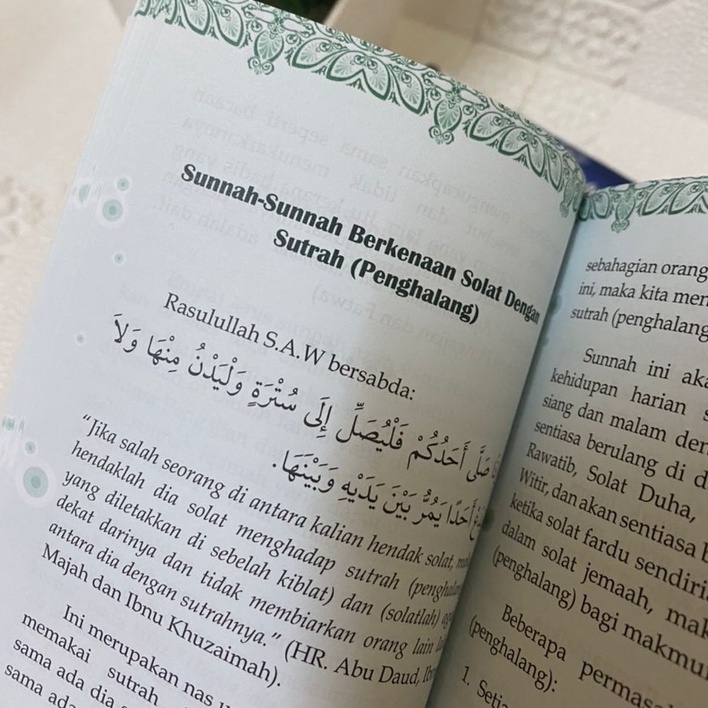 Sunnah-Sunnah Berkenaan Solat Dengan
Sutrah (Penghalang)
Rasulullah S.A.W bersabda:
صَلَّى أَحَدُكُمْ فَلْيُصَلِّ إِلَى سُتْرَةٍ وَلْيَدْنُ مِنْهَا وَلاَ
أَحَدًا يَمُرُّ بَيْنَ يَدَيْهِ وَبَيْنَهَا.
"Jika salah seorang di antara kalian hendak solat,
hendaklah dia solat menghadap sutrah
yang diletakkan di sebelah kiblat) dan (solatlah)
dekat darinya dan tidak membiarkan orang lain
antara dia dengan sutrahnya." (HR. Abu Daud,
Majah dan Ibnu Khuzaimah).
Ini merupakan nas
memakai sutrah
sama ada dia
sama ada
sebahagian orang
ini, maka kita
sutrah (penghalang
Sunnah ini
kehidupan harian
siang dan malam
sentiasa berulang di
Rawatib, Solat Duha,
Witir, dan akan sentiasa
ketika solat fardu
dalam solat jemaah,
(penghalang) bagi
Beberapa
(penghalang):
1.